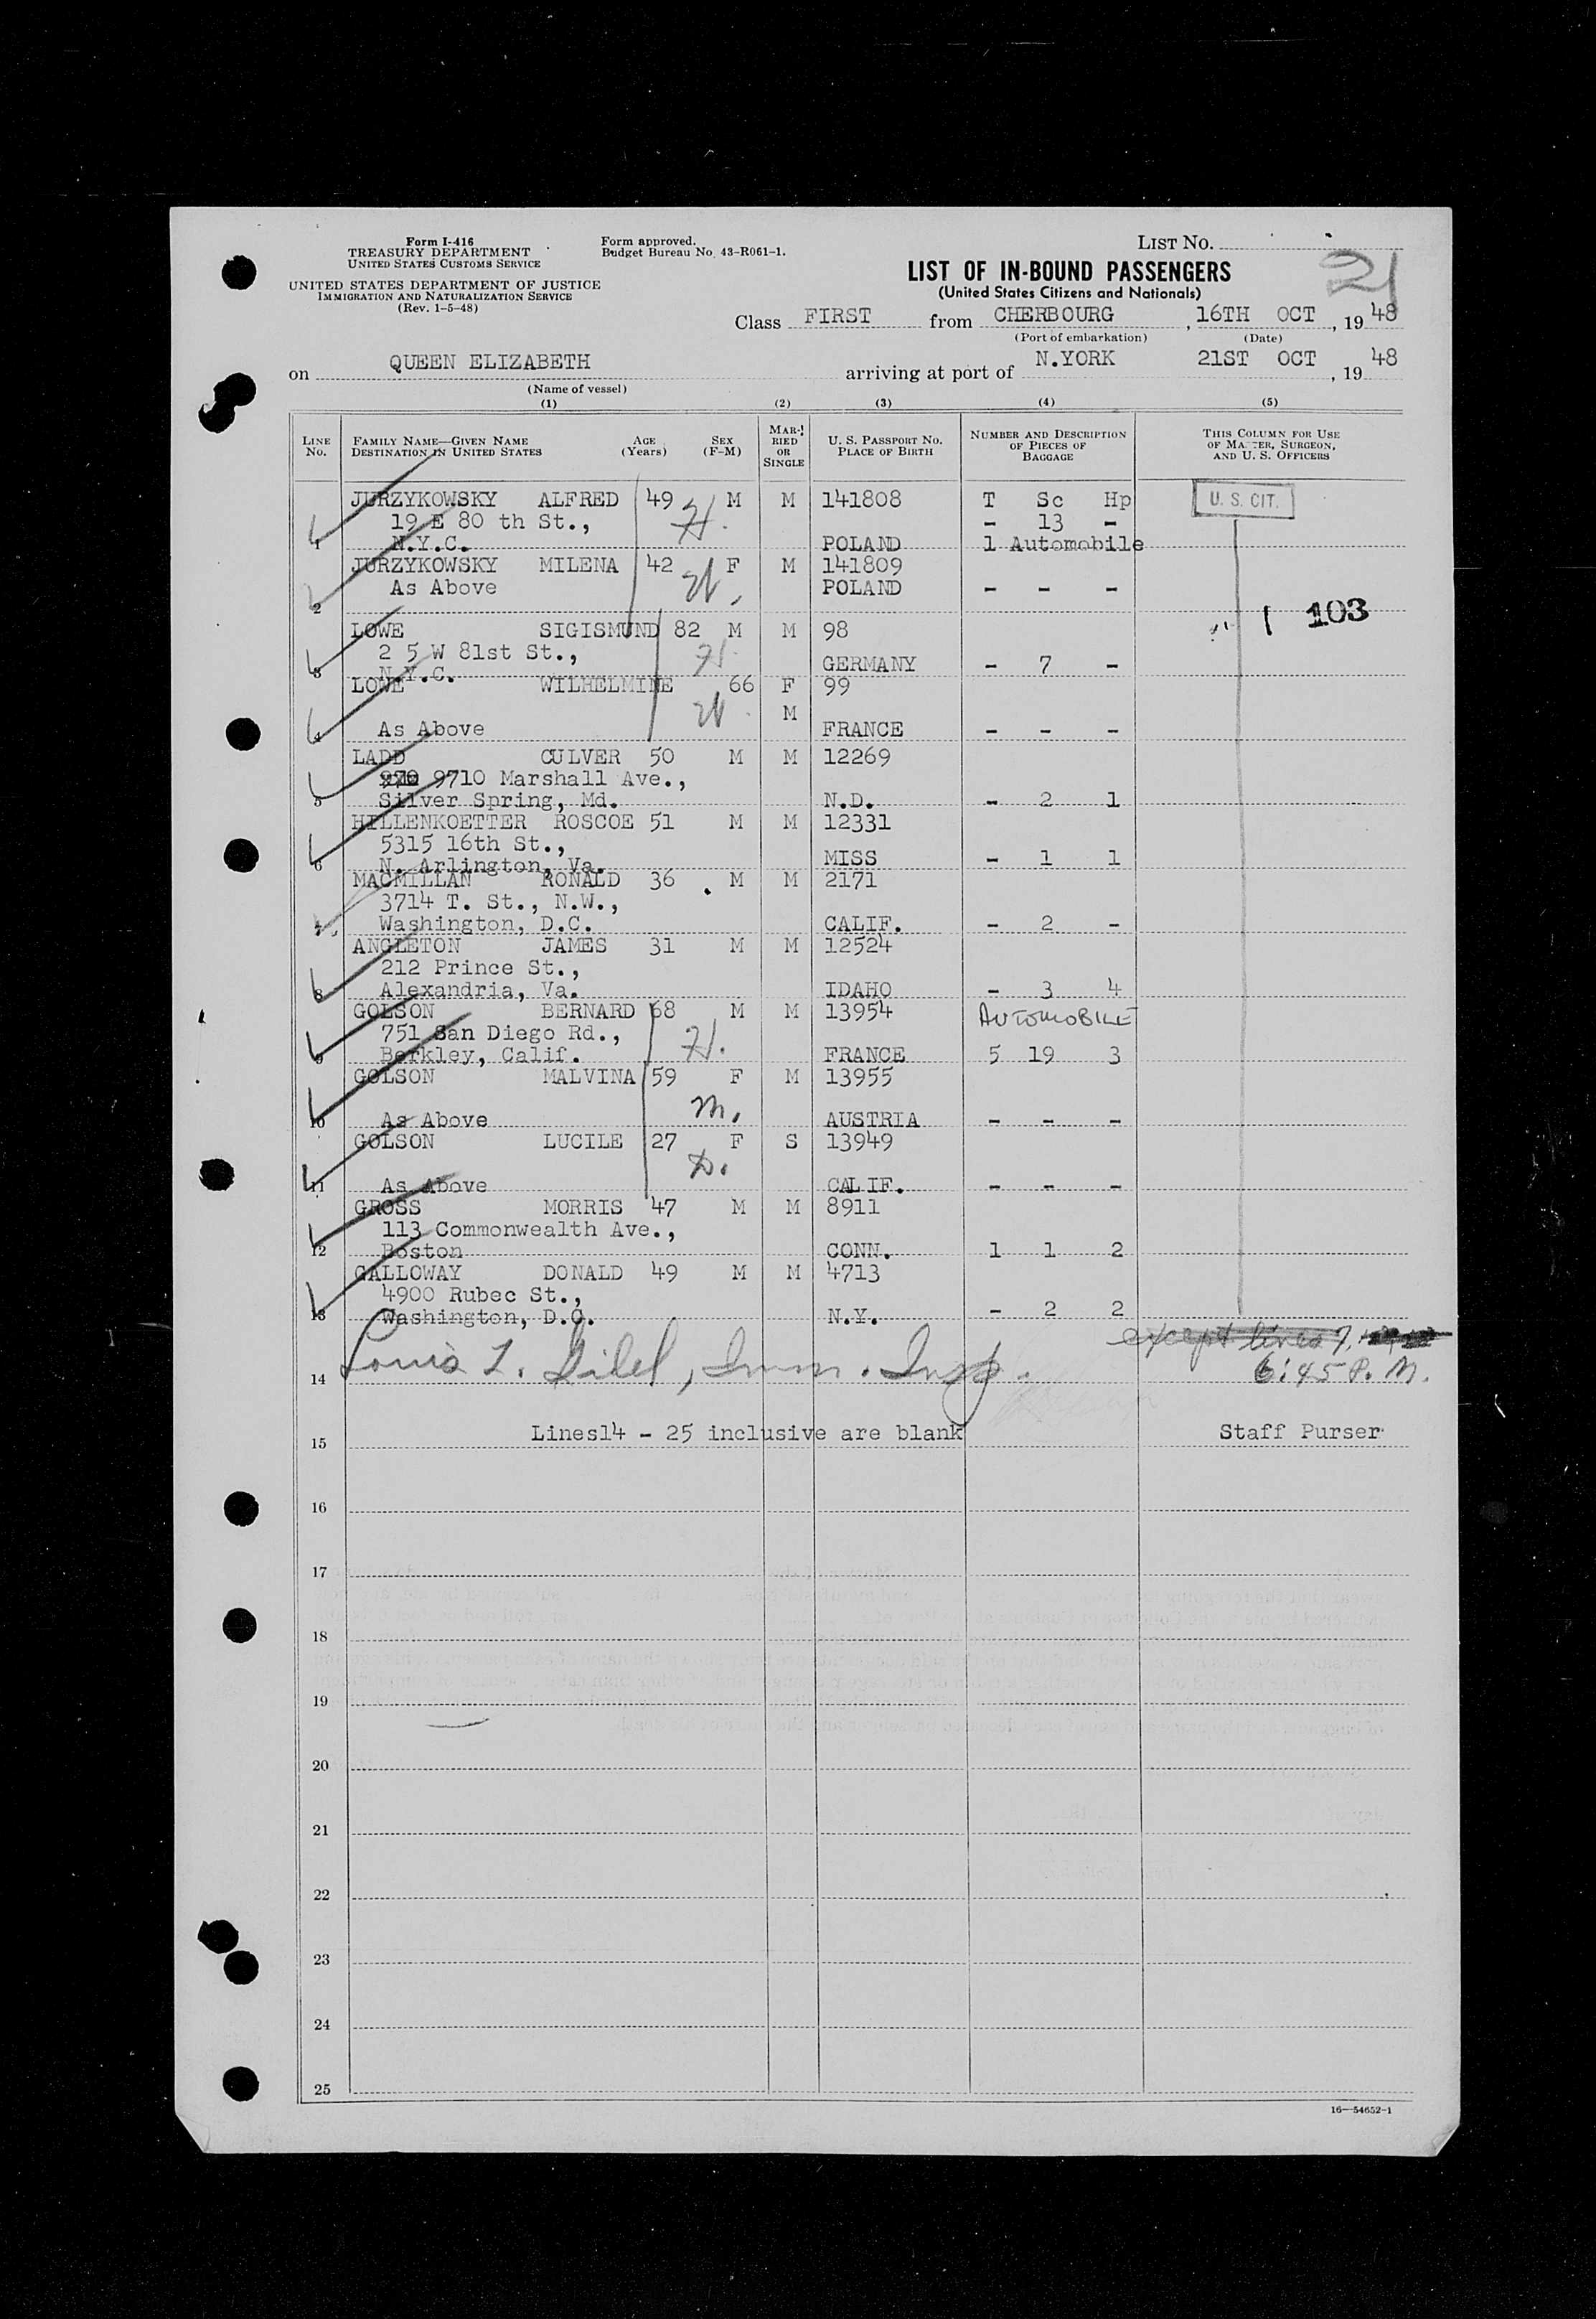 Form I-416
TREASURY DEPARTMENT
UNITED STATES CUSTOMS SERVICE
UNITED STATES DEPARTMENT OF JUSTICE
IMMIGRATION AND NATURALIZATION SERVICE
(Rev. 1-5-48)
Form approved.
Budget Bureau No. 43-R061-1.
LIST NO.
21
LIST OF IN-BOUND PASSENGERS
(United States Citizens and Nationals)
Class FIRST from CHERBOURG, 16TH OCT, 19 48
(Port of embarkation) (Date)
on QUEEN ELIZABETH arriving at port of N.YORK 21ST OCT, 19 48
(Name of vessel)
(1) (2) (3) (4) (5)
LINE NO. FAMILY NAME—GIVEN NAME DESTINATION IN UNITED STATES AGE (Years) SEX (F-M) MARRIED OR SINGLE U. S. PASSPORT NO. PLACE OF BIRTH NUMBER AND DESCRIPTION OF PIECES OF BAGGAGE THIS COLUMN FOR USE OF MASTER, SURGEON, AND U. S. OFFICERS
JURZYKOWSKY ALFRED 49 M M 141808 T Sc Hp U. S. CIT.
19 E 80 th St., H. - 13 -
1 N.Y.C. POLAND 1 Automobile
JURZYKOWSKY MILENA 42 F M 141809
As Above W. POLAND - - -
2
103
LOWE SIGISMUND 82 M M 98
2 5 W 81st St., H.
3 N.Y.C. GERMANY - 7 -
LOWE WILHELMINE 66 F 99
W. M
4 As Above FRANCE - - -
LADD CULVER 50 M M 12269
970 9710 Marshall Ave.,
5 Silver Spring, Md. N.D. - 2 1
HILLENKOETTER ROSCOE 51 M M 12331
5315 16th St.,
6 N. Arlington, Va. MISS - 1 1
MACMILLAN RONALD 36 M M 2171
3714 T. St., N.W.,
Washington, D.C. CALIF. - 2 -
ANGLETON JAMES 31 M M 12524
212 Prince St.,
8 Alexandria, Va. IDAHO - 3 4
GOLSON BERNARD 68 M M 13954 AUTOMOBILE
751 San Diego Rd., H.
9 Berkley, Calif. FRANCE 5 19 3
GOLSON MALVINA 59 F M 13955
m.
10 As Above AUSTRIA - - -
GOLSON LUCILE 27 F S 13949
D.
11 As Above CALIF. - - -
GROSS MORRIS 47 M M 8911
113 Commonwealth Ave.,
12 Boston CONN. 1 1 2
GALLOWAY DONALD 49 M M 4713
4900 Rubec St.,
13 Washington, D.C. N.Y. - 2 2
except lines 7,
Louis L. , Imm. Insp. 6:45 P.M.
14
Lines14 - 25 inclusive are blank Staff Purser
15
16
17
18
19
20
21
22
23
24
25
16—54652-1